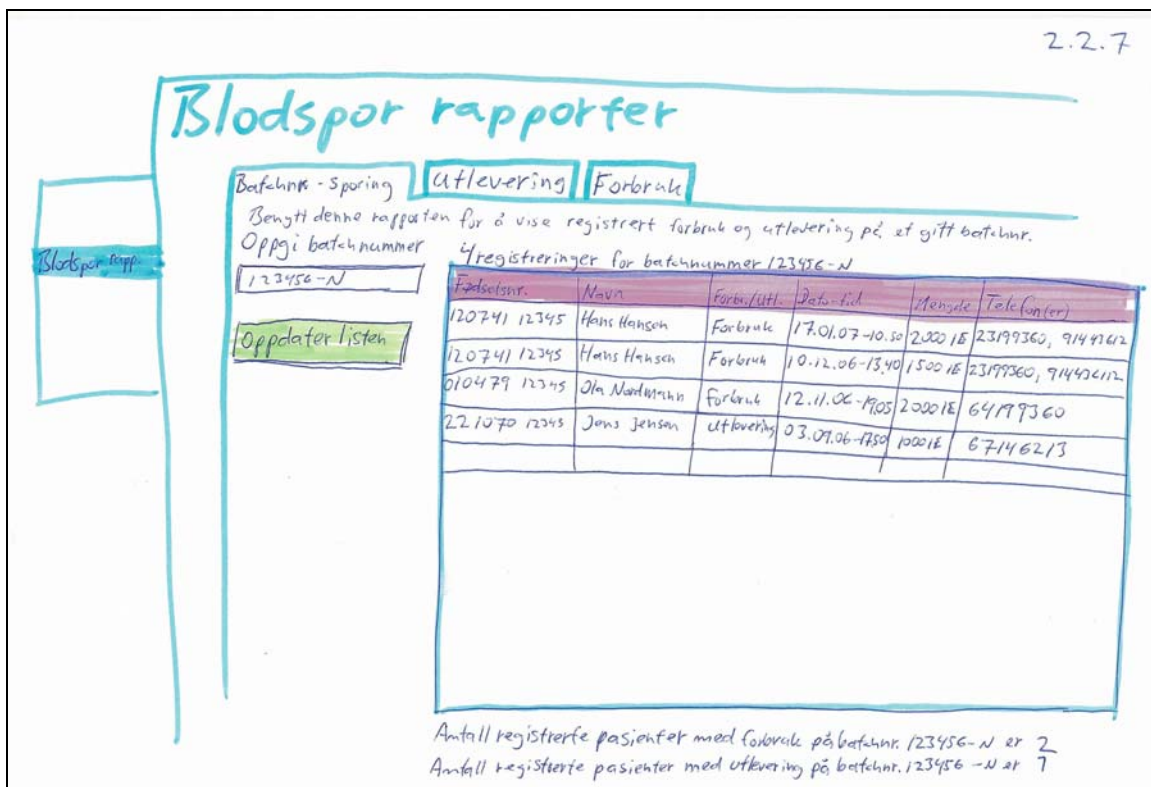 2.2.7
Blodspor rapporter
Batchnr-Sporing Utlevering Forbruk
Benytt denne rapporten for å vise registrert forbruk og utlevering på et gitt batchnr.
Blodspor rapp.
Oppgi batchnummer
123456-N
Oppdater listen
4 registreringer for batchnummer 123456-N
Fødselsnr. Navn Forbr./Utl. Dato-tid Mengde Telefon(er)
120741 12345 Hans Hansen Forbruk 17.01.07-10.50 2000 IE 23199360, 91443612
120741 12345 Hans Hansen Forbruk 10.12.06-13.40 1500 IE 23199360,
010479 12345 Ola Nordmann Forbruk 12.11.06-19.05 2000 IE 64199360
221070 12345 Jens Jensen Utlevering 03.09.06-17.50 1000 IE 67146213
Antall registrerte pasienter med forbruk på batchnr. 123456-N er 2
Antall registrerte pasienter med utlevering på batchnr. 123456-N er 1